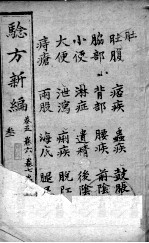 驗方新編
卷五 卷六 卷七
肚
肚腹 瘧疾 蟲疾 鼓脹
脇部 背部 腰疾 前陰
小便 淋症 遺精 後陰
大便 泄瀉 痢疾 脫肛
痔瘡 兩股